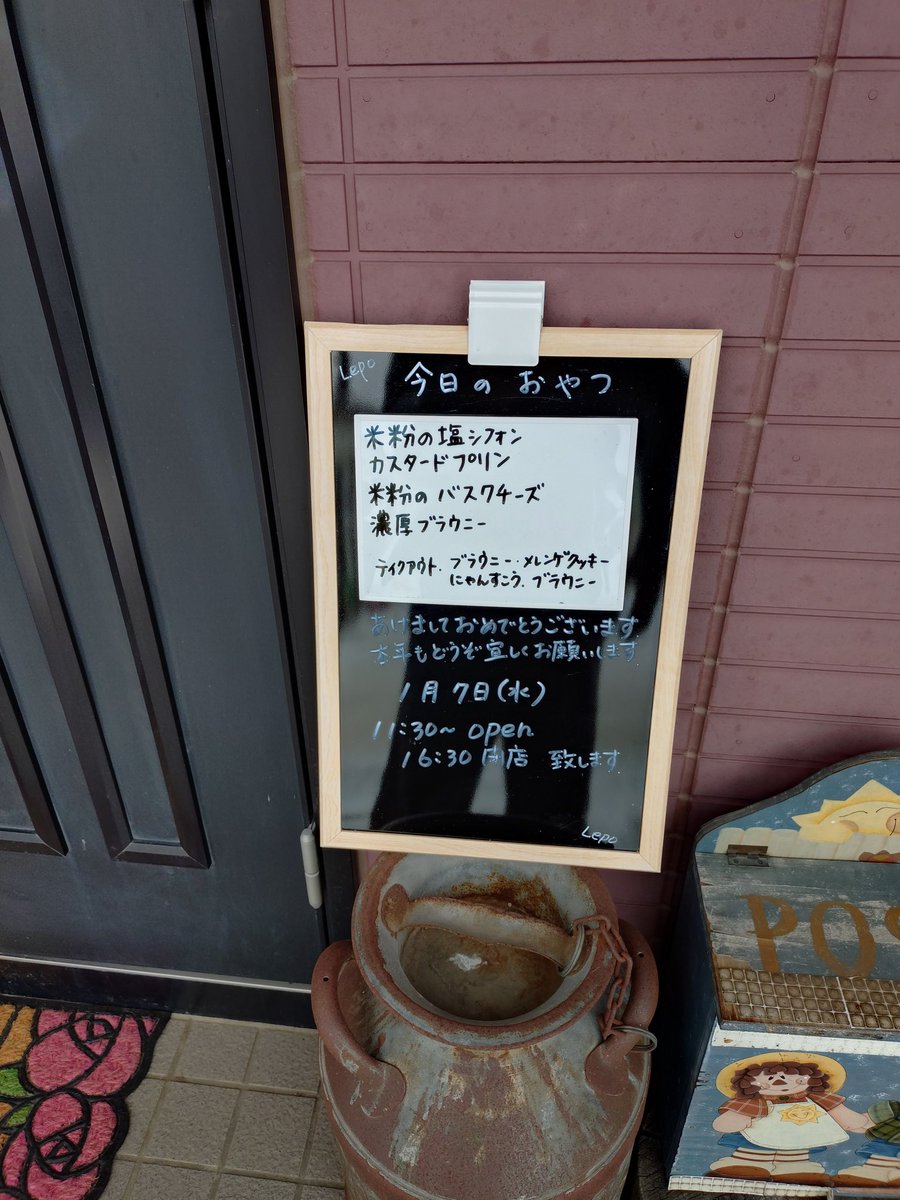 Lepo
今日のおやつ
米粉の塩シフォン
カスタードプリン
米粉のバスクチーズ
濃厚ブラウニー
テイクアウト．ブラウニー・メレンゲクッキー
にゃんすこう．ブラウニー
あけましておめでとうございます
本年もどうぞ宜しくお願いします
1月7日(水)
11:30~ open
16:30 閉店 致します
Lepo
POS